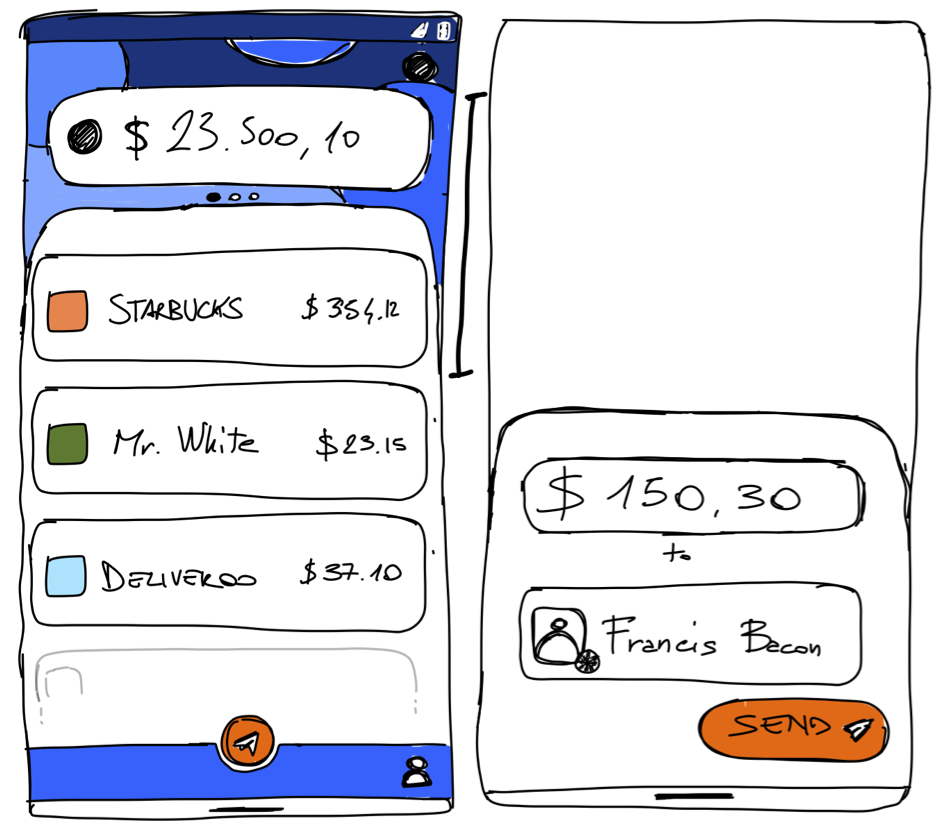 $ 23.500,10
STARBUCKS $354.12
Mr. White $23.15
DELIVEROO $37.10
$ 150,30
to
Francis Bacon
SEND